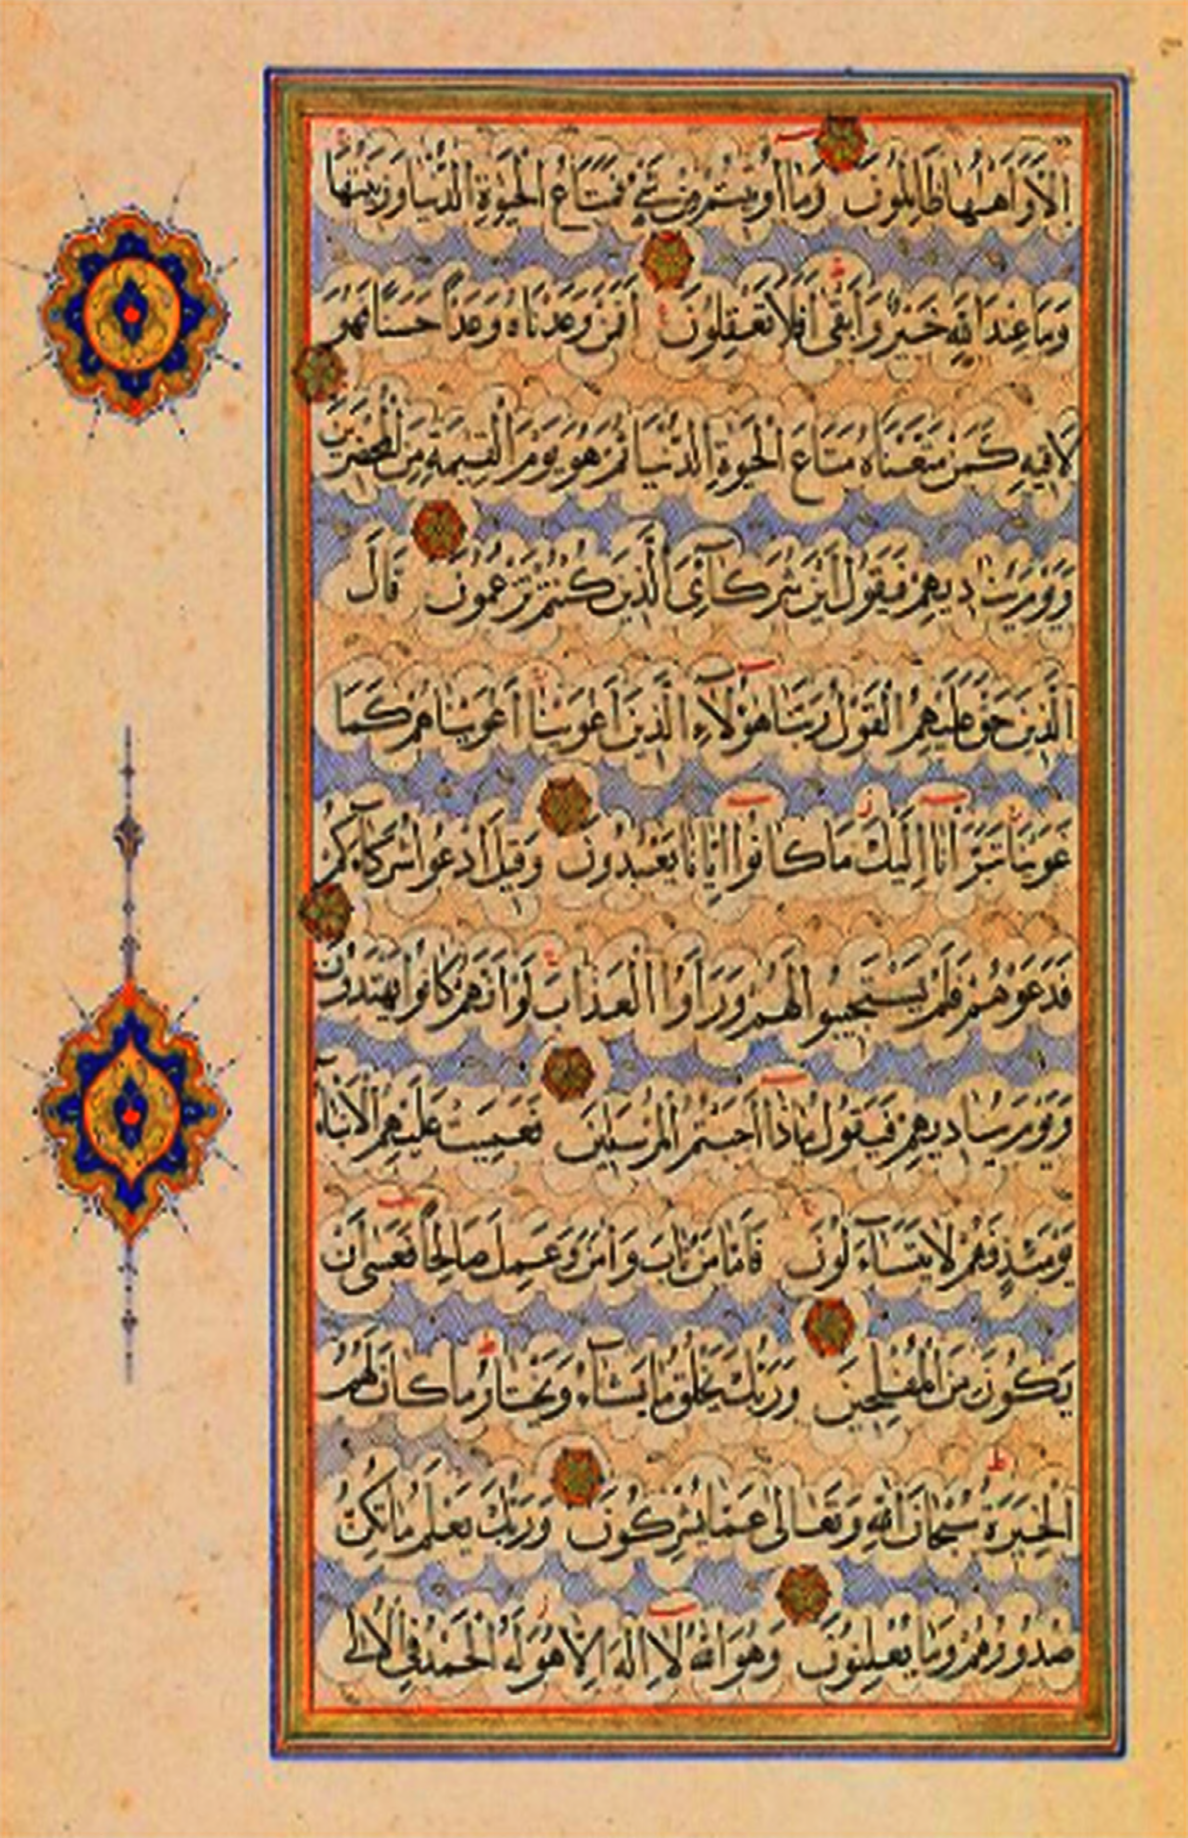 اِلَّا وَاَهْلُهَا ظَالِمُونَ وَمَا اُوتِيتُمْ مِنْ شَيْءٍ فَمَتَاعُ الْحَيٰوةِ الدُّنْيَا وَزِينَتُهَا
وَمَا عِنْدَ اللّٰهِ خَيْرٌ وَاَبْقٰى اَفَلَا تَعْقِلُونَ اَفَمَنْ وَعَدْنَاهُ وَعْدًا حَسَنًا فَهُوَ
لَاقِيهِ كَمَنْ مَتَّعْنَاهُ مَتَاعَ الْحَيٰوةِ الدُّنْيَا ثُمَّ هُوَ يَوْمَ الْقِيٰمَةِ مِنَ الْمُحْضَرِينَ
وَيَوْمَ يُنَادِيهِمْ فَيَقُولُ اَيْنَ شُرَكَآئِىَ الَّذِينَ كُنْتُمْ تَزْعُمُونَ قَالَ
الَّذِينَ حَقَّ عَلَيْهِمُ الْقَوْلُ رَبَّنَا هٰؤُلَاءِ الَّذِينَ اَغْوَيْنَا اَغْوَيْنَاهُمْ كَمَا
غَوَيْنَا تَبَرَّاْنَا اِلَيْكَ مَا كَانُوا اِيَّانَا يَعْبُدُونَ وَقِيلَ ادْعُوا شُرَكَاءَكُمْ
فَدَعَوْهُمْ فَلَمْ يَسْتَجِيبُوا لَهُمْ وَرَاَوُا الْعَذَابَ لَوْ اَنَّهُمْ كَانُوا يَهْتَدُونَ
وَيَوْمَ يُنَادِيهِمْ فَيَقُولُ مَاذَا اَجَبْتُمُ الْمُرْسَلِينَ فَعَمِيَتْ عَلَيْهِمُ الْاَنْبَاءُ
يَوْمَئِذٍ فَهُمْ لَا يَتَسَاءَلُونَ فَاَمَّا مَنْ تَابَ وَاٰمَنَ وَعَمِلَ صَالِحًا فَعَسٰى اَنْ
يَكُونَ مِنَ الْمُفْلِحِينَ وَرَبُّكَ يَخْلُقُ مَا يَشَاءُ وَيَخْتَارُ مَا كَانَ لَهُمُ
الْخِيَرَةُ سُبْحَانَ اللّٰهِ وَتَعَالٰى عَمَّا يُشْرِكُونَ وَرَبُّكَ يَعْلَمُ مَا تُكِنُّ
صُدُورُهُمْ وَمَا يُعْلِنُونَ وَهُوَ اللّٰهُ لَا اِلٰهَ اِلَّا هُوَ لَهُ الْحَمْدُ فِي الْاُولٰى